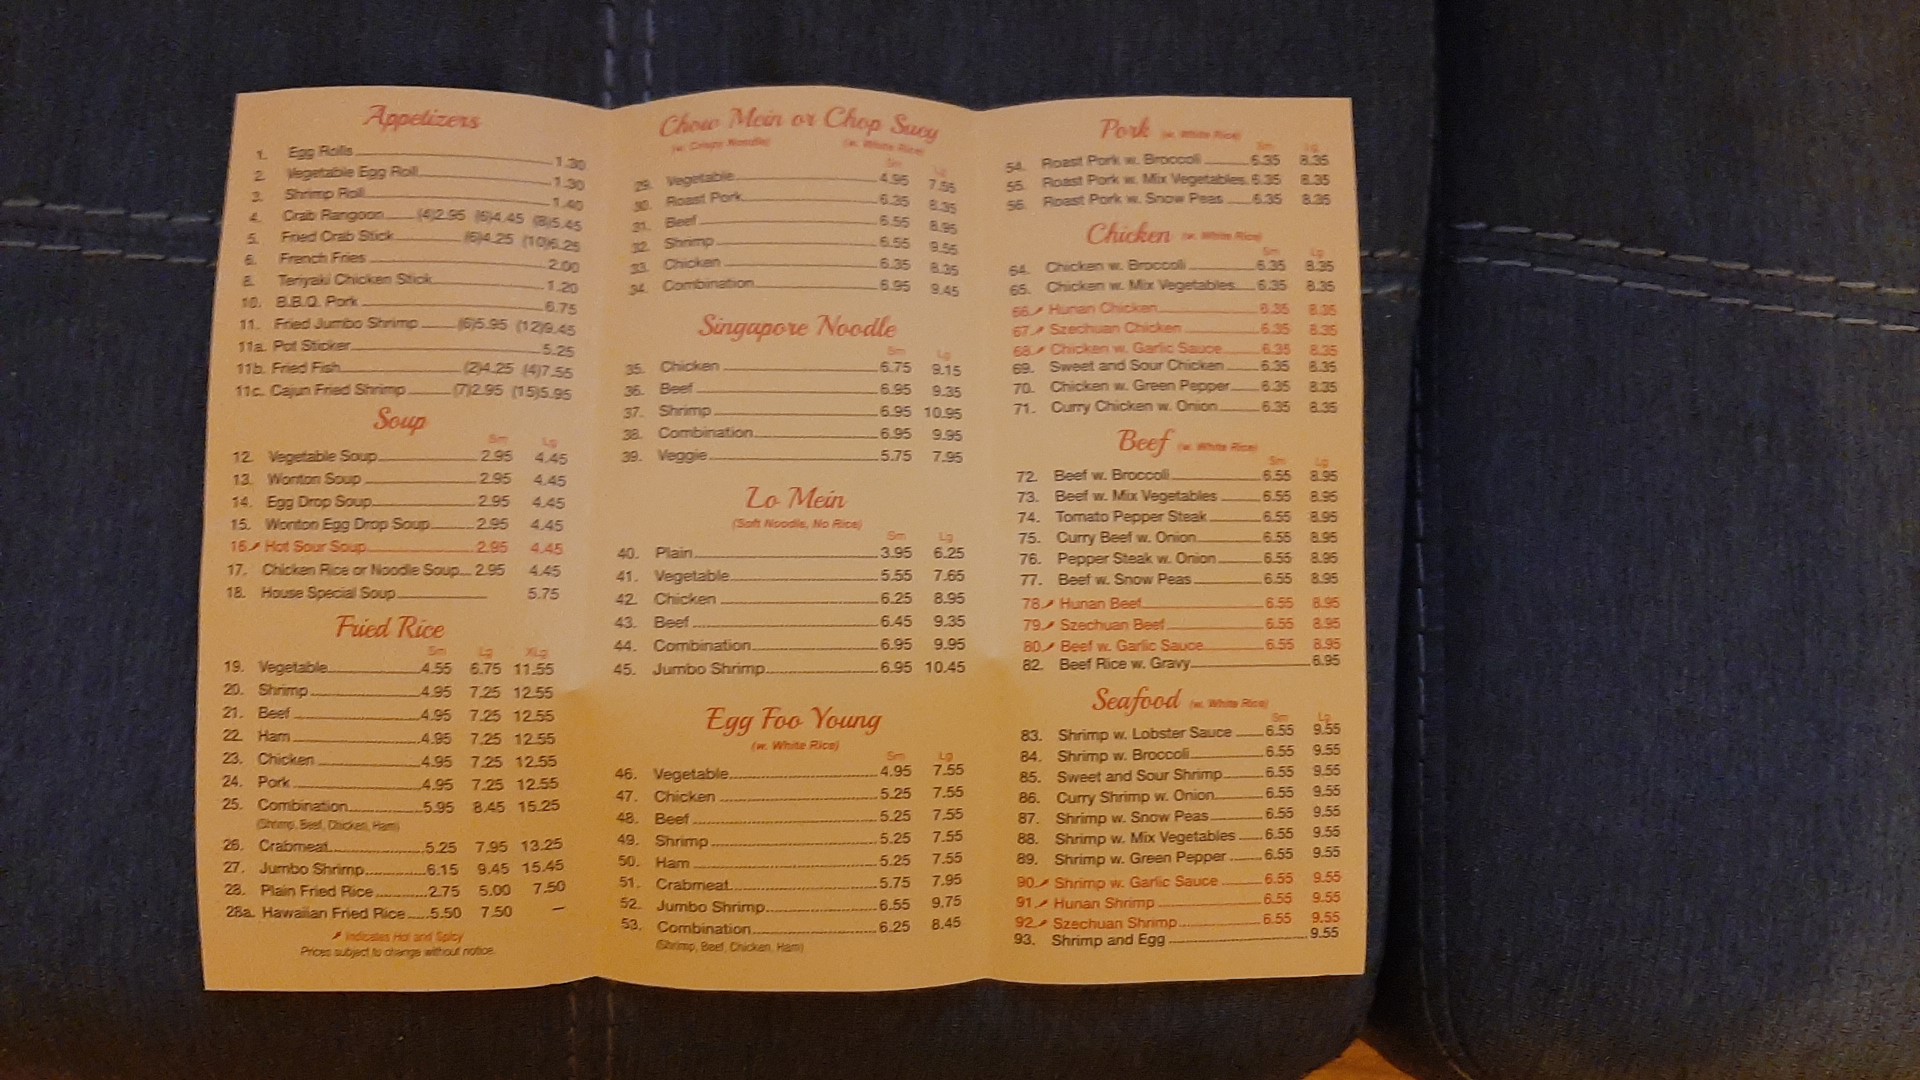 Appetizers
1. Egg Rolls 1.30
2. Vegetable Egg Roll 1.30
3. Shrimp Roll 1.40
4. Crab Rangoon (4)2.95 (6)4.45 (8)5.45
5. Fried Crab Stick (6)4.25 (10)6.25
6. French Fries 2.00
8. Teriyaki Chicken Stick 1.20
10. B.B.Q. Pork 6.75
11. Fried Jumbo Shrimp (6)5.95 (12)9.45
11a. Pot Sticker 5.25
11b. Fried Fish (2)4.25 (4)7.55
11c. Cajun Fried Shrimp (7)2.95 (15)5.95
Soup
Sm Lg
12. Vegetable Soup 2.95 4.45
13. Wonton Soup 2.95 4.45
14. Egg Drop Soup 2.95 4.45
15. Wonton Egg Drop Soup 2.95 4.45
16. Hot Sour Soup 2.95 4.45
17. Chicken Rice or Noodle Soup 2.95 4.45
18. House Special Soup 5.75
Fried Rice
Sm Lg XLg
19. Vegetable 4.55 6.75 11.55
20. Shrimp 4.95 7.25 12.55
21. Beef 4.95 7.25 12.55
22. Ham 4.95 7.25 12.55
23. Chicken 4.95 7.25 12.55
24. Pork 4.95 7.25 12.55
25. Combination 5.95 8.45 15.25
(Shrimp, Beef, Chicken, Ham)
26. Crabmeat 5.25 7.95 13.25
27. Jumbo Shrimp 6.15 9.45 15.45
28. Plain Fried Rice 2.75 5.00 7.50
28a. Hawaiian Fried Rice 5.50 7.50 —
Indicates Hot and Spicy
Prices subject to change without notice.
Chow Mein or Chop Suey
(w. Crispy Noodle) (w. White Rice)
Sm Lg
29. Vegetable 4.95 7.55
30. Roast Pork 6.35 8.35
31. Beef 6.55 8.95
32. Shrimp 6.55 9.55
33. Chicken 6.35 8.35
34. Combination 6.95 9.45
Singapore Noodle
Sm Lg
35. Chicken 6.75 9.15
36. Beef 6.95 9.35
37. Shrimp 6.95 10.95
38. Combination 6.95 9.95
39. Veggie 5.75 7.95
Lo Mein
(Soft Noodle, No Rice)
Sm Lg
40. Plain 3.95 6.25
41. Vegetable 5.55 7.65
42. Chicken 6.25 8.95
43. Beef 6.45 9.35
44. Combination 6.95 9.95
45. Jumbo Shrimp 6.95 10.45
Egg Foo Young
(w. White Rice)
Sm Lg
46. Vegetable 4.95 7.55
47. Chicken 5.25 7.55
48. Beef 5.25 7.55
49. Shrimp 5.25 7.55
50. Ham 5.25 7.55
51. Crabmeat 5.75 7.95
52. Jumbo Shrimp 6.55 9.75
53. Combination 6.25 8.45
(Shrimp, Beef, Chicken, Ham)
Pork (w. White Rice)
Sm Lg
54. Roast Pork w. Broccoli 6.35 8.35
55. Roast Pork w. Mix Vegetables 6.35 8.35
56. Roast Pork w. Snow Peas 6.35 8.35
Chicken (w. White Rice)
Sm Lg
64. Chicken w. Broccoli 6.35 8.35
65. Chicken w. Mix Vegetables 6.35 8.35
66. Hunan Chicken 6.35 8.35
67. Szechuan Chicken 6.35 8.35
68. Chicken w. Garlic Sauce 6.35 8.35
69. Sweet and Sour Chicken 6.35 8.35
70. Chicken w. Green Pepper 6.35 8.35
71. Curry Chicken w. Onion 6.35 8.35
Beef (w. White Rice)
Sm Lg
72. Beef w. Broccoli 6.55 8.95
73. Beef w. Mix Vegetables 6.55 8.95
74. Tomato Pepper Steak 6.55 8.95
75. Curry Beef w. Onion 6.55 8.95
76. Pepper Steak w. Onion 6.55 8.95
77. Beef w. Snow Peas 6.55 8.95
78. Hunan Beef 6.55 8.95
79. Szechuan Beef 6.55 8.95
80. Beef w. Garlic Sauce 6.55 8.95
82. Beef Rice w. Gravy 6.95
Seafood (w. White Rice)
Sm Lg
83. Shrimp w. Lobster Sauce 6.55 9.55
84. Shrimp w. Broccoli 6.55 9.55
85. Sweet and Sour Shrimp 6.55 9.55
86. Curry Shrimp w. Onion 6.55 9.55
87. Shrimp w. Snow Peas 6.55 9.55
88. Shrimp w. Mix Vegetables 6.55 9.55
89. Shrimp w. Green Pepper 6.55 9.55
90. Shrimp w. Garlic Sauce 6.55 9.55
91. Hunan Shrimp 6.55 9.55
92. Szechuan Shrimp 6.55 9.55
93. Shrimp and Egg 9.55